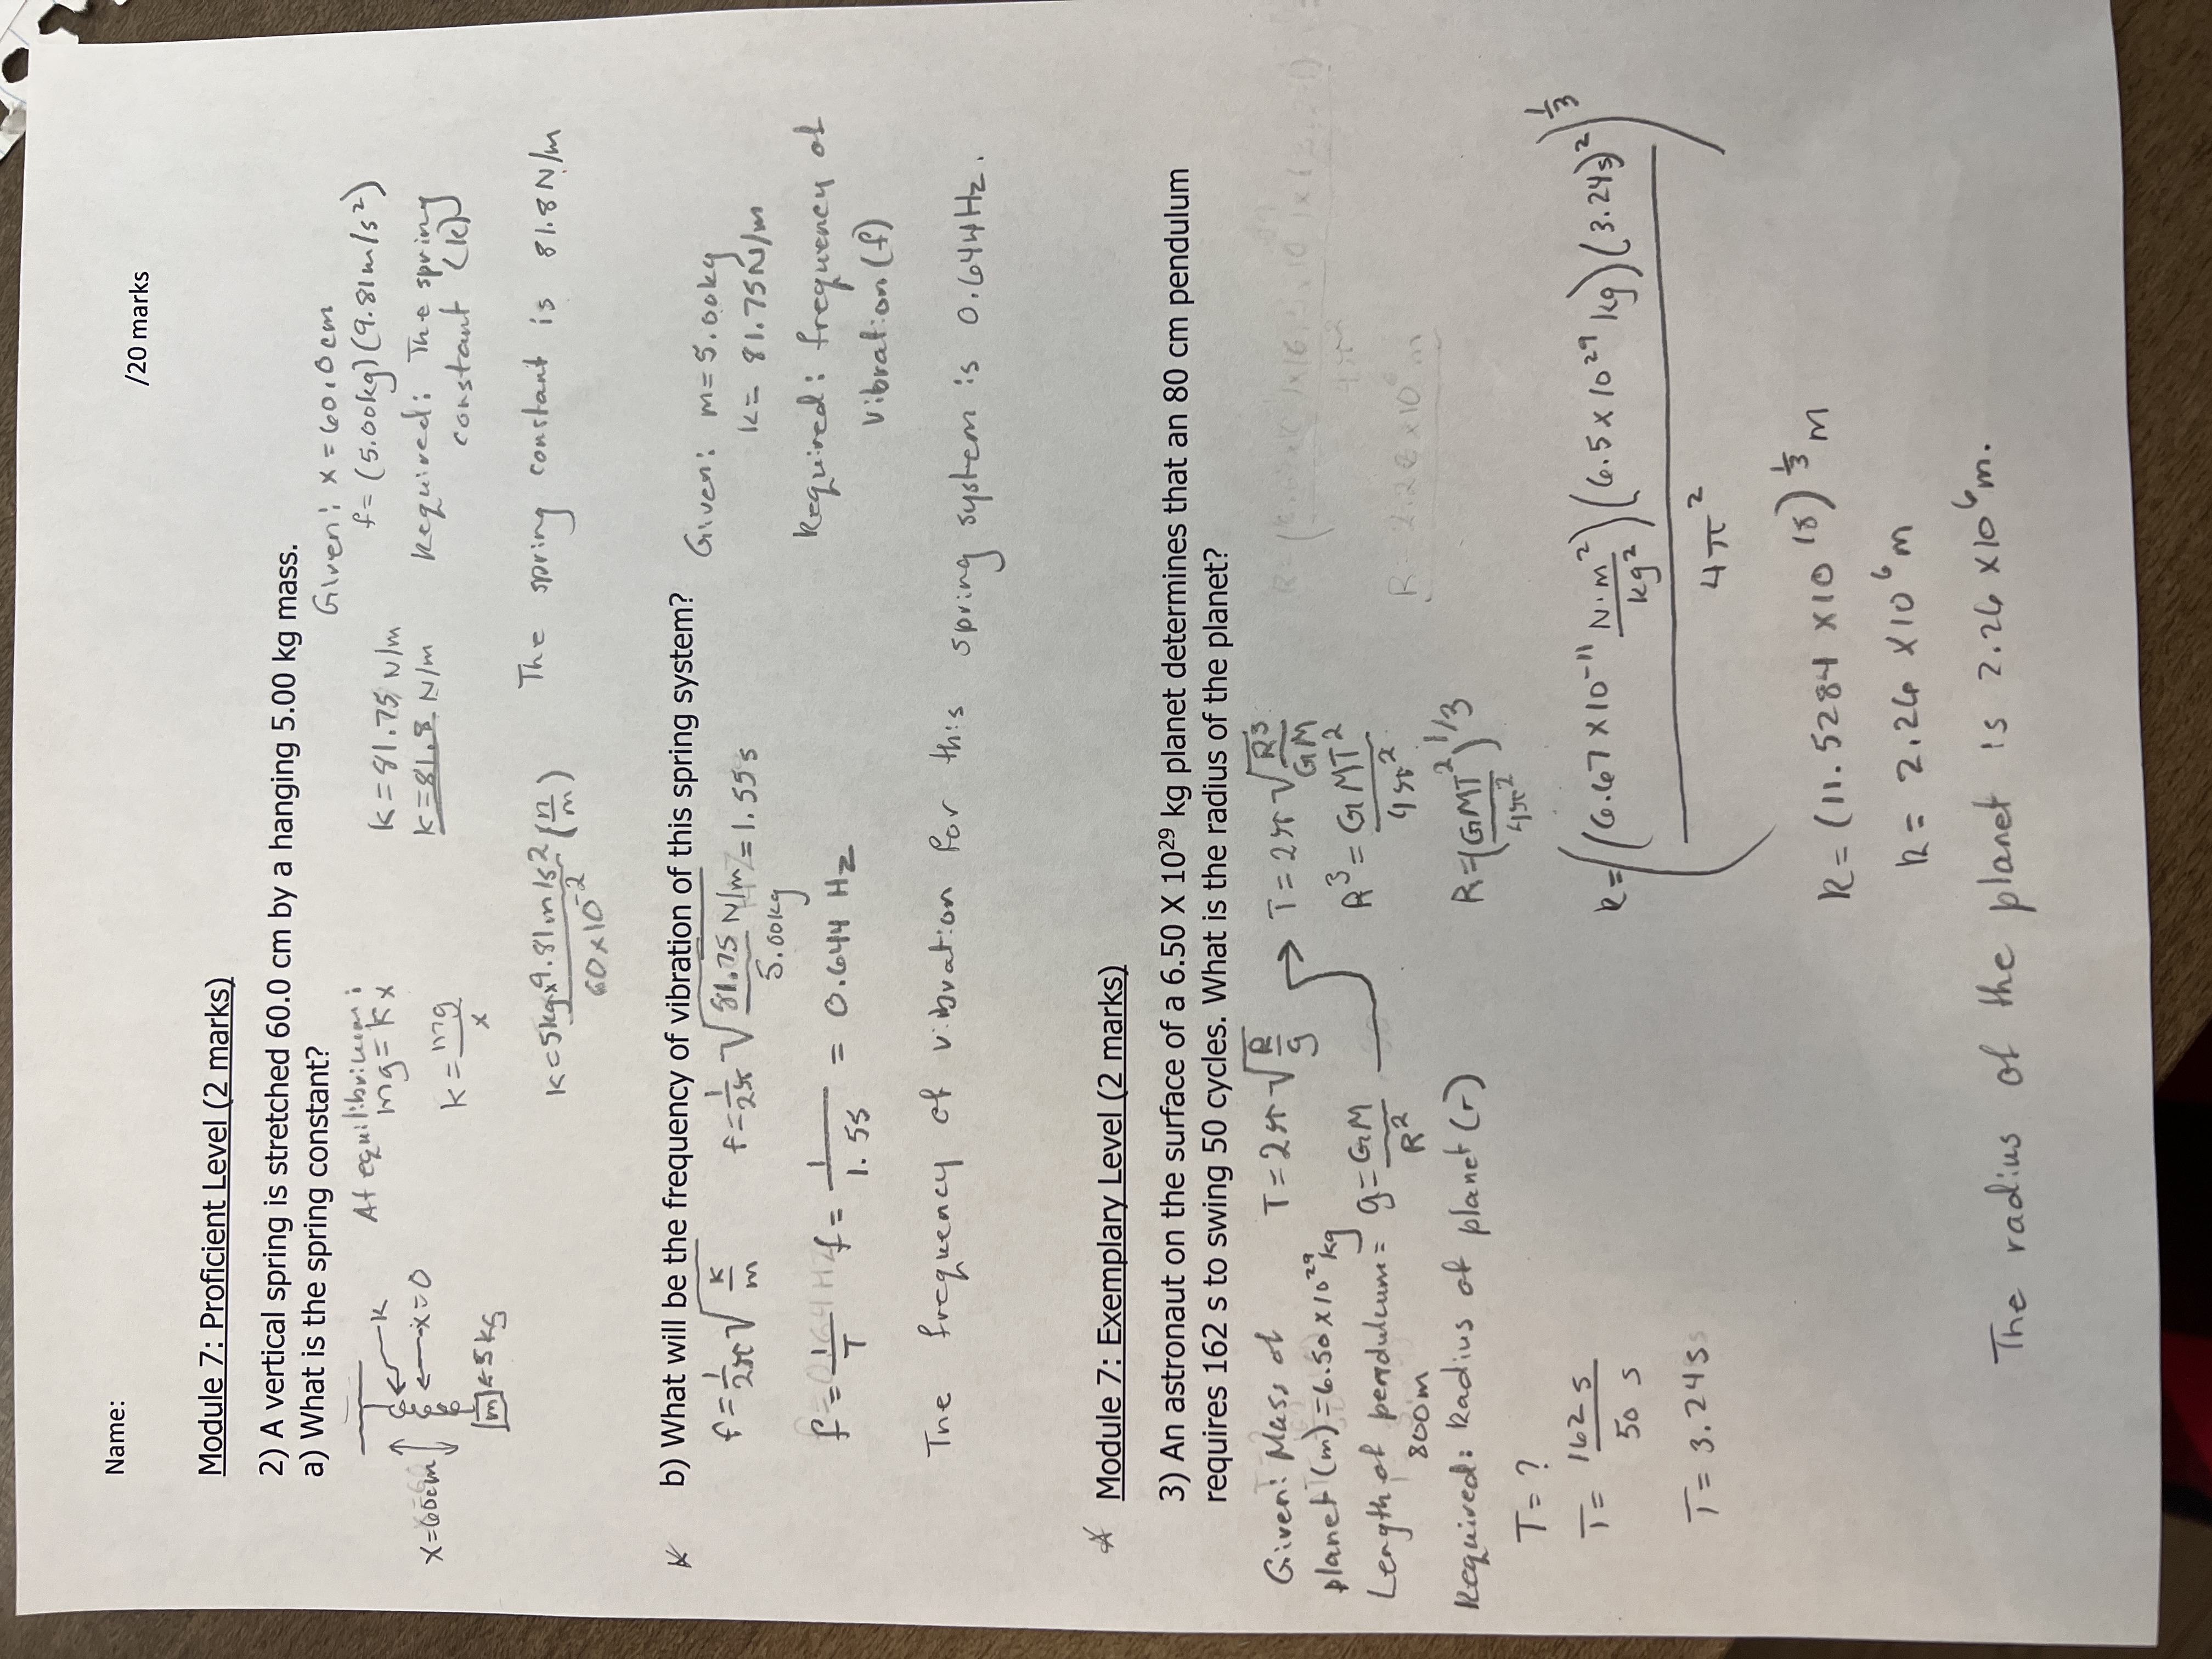 Name:
/20 marks
Module 7: Proficient Level (2 marks)
2) A vertical spring is stretched 60.0 cm by a hanging 5.00 kg mass.
a) What is the spring constant?
Given: x = 60.0cm
f= (5.00kg)(9.81m/s²)
Required: The spring
constant (k)
x=60cm
k
x=0
m ← 5kg
At equilibrium:
mg = kx
k = mg/x
k = 5kg×9.81m/s²/60×10⁻² (n/m)
k = 81.75 N/m
k = 81.8 N/m
The spring constant is 81.8 N/m
b) What will be the frequency of vibration of this spring system?
Given: m = 5.00kg
k = 81.75N/m
Required: frequency of
vibration (f)
f = 1/2π √k/m f = 1/2π √81.75 N/m/5.00kg = 1.55 s
f = 1/T f = 1/1.55 = 0.644 Hz
The frequency of vibration for this spring system is 0.644Hz.
Module 7: Exemplary Level (2 marks)
3) An astronaut on the surface of a 6.50 X 10²⁹ kg planet determines that an 80 cm pendulum
requires 162 s to swing 50 cycles. What is the radius of the planet?
Given: Mass of
planet (m) = 6.50 × 10²⁹ kg
Length of pendulum =
800m
Required: Radius of planet (r)
T = ?
T = 162 s/50 s
T = 3.24s
T = 2π √R/g
g = GM/R²
T = 2π √R³/GM
R³ = GMT²/4π²
R = (GMT²/4π²)^1/3
R = ((6.67 × 10⁻¹¹ N·m²/kg²)(6.5 × 10²⁹ kg)(3.24s)²/4π²)^1/3
R = (11.5284 × 10¹⁸)^1/3 m
R = 2.26 × 10⁶ m
The radius of the planet is 2.26 × 10⁶ m.